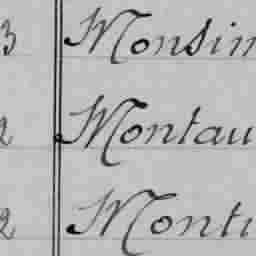 3 Monsim
2 Montau
2 Monti